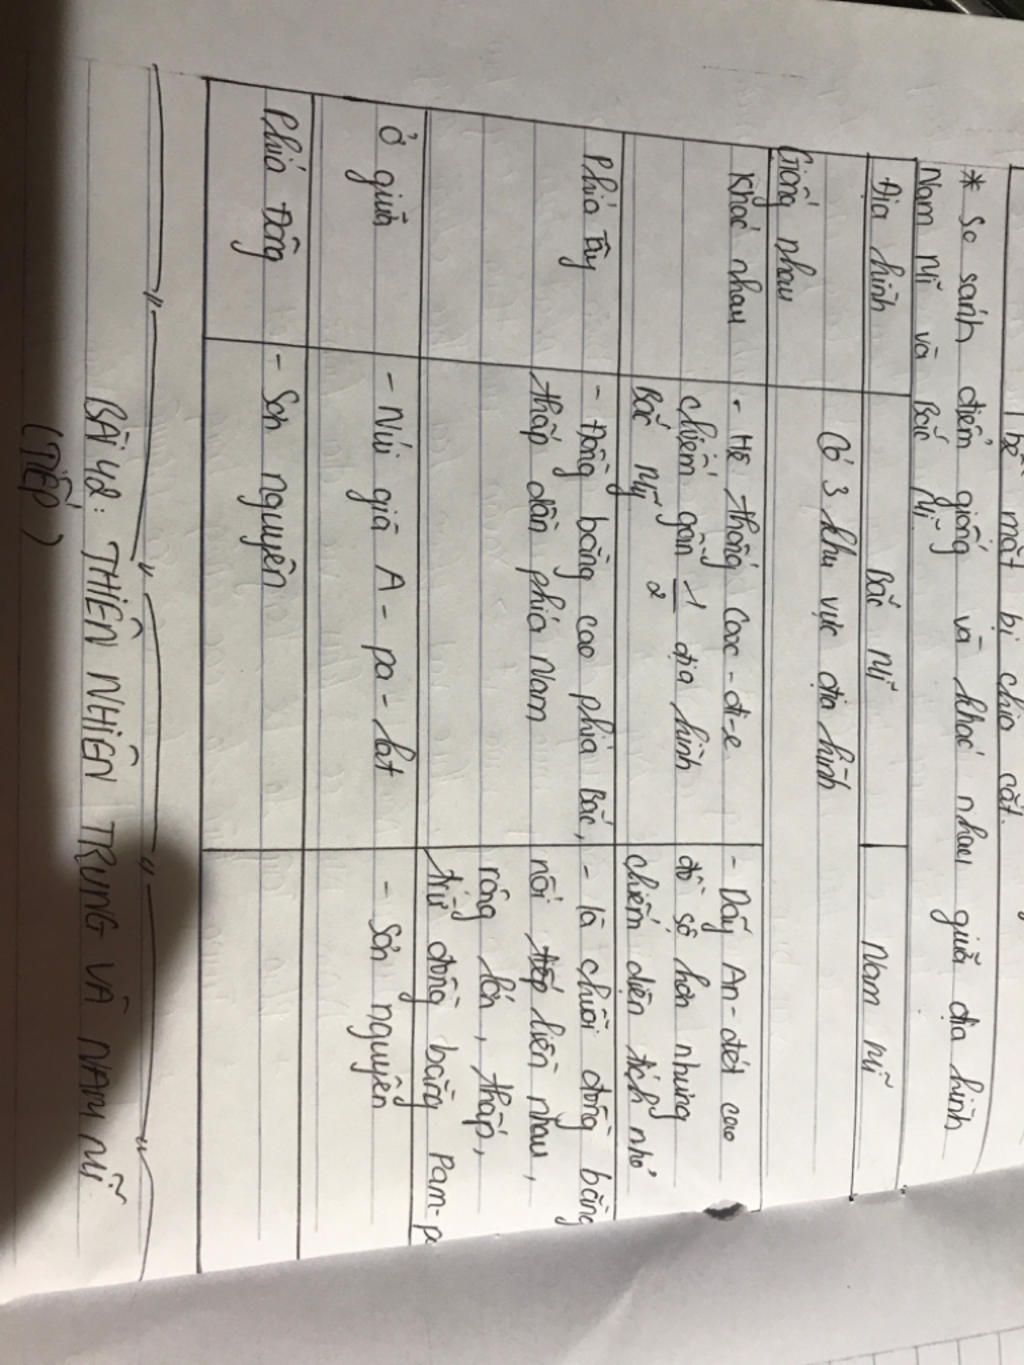 bề mặt bị chia cắt.
* So sánh điểm giống và khác nhau giữa địa hình
Nam Mĩ và Bắc Mĩ
Địa hình Bắc Mĩ Nam Mĩ
Giống nhau Có 3 khu vực địa hình
Khác nhau - Hệ thống Cooc-đi-e - Dãy An-đét cao
chiếm gần 1/2 địa hình đồ sộ hơn nhưng
Bắc Mỹ chiếm diện tích nhỏ
Phía Tây - Đồng bằng cao phía Bắc, - là chuỗi đồng bằng
thấp dần phía Nam nối tiếp liền nhau,
rộng lớn, thấp,
trừ đồng bằng Pam-pa
Ở giữa - Núi già A-pa-lat - Sơn nguyên
Phía Đông - Sơn nguyên
BÀI 42: THIÊN NHIÊN TRUNG VÀ NAM MĨ
(TIẾP)